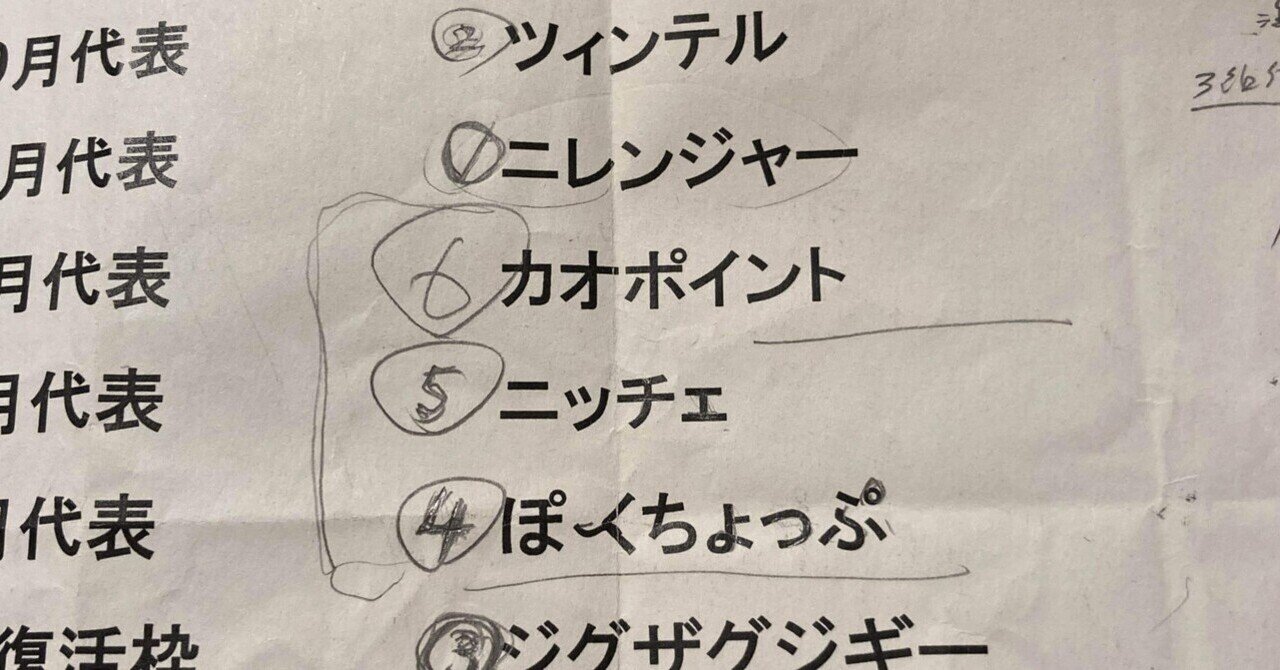 月代表 ② ツィンテル
月代表 ① ニレンジャー
月代表 ⑥ カオポイント
月代表 ⑤ ニッチェ
月代表 ④ ぽくちょっぷ
復活枠 ③ ジグザグジギー